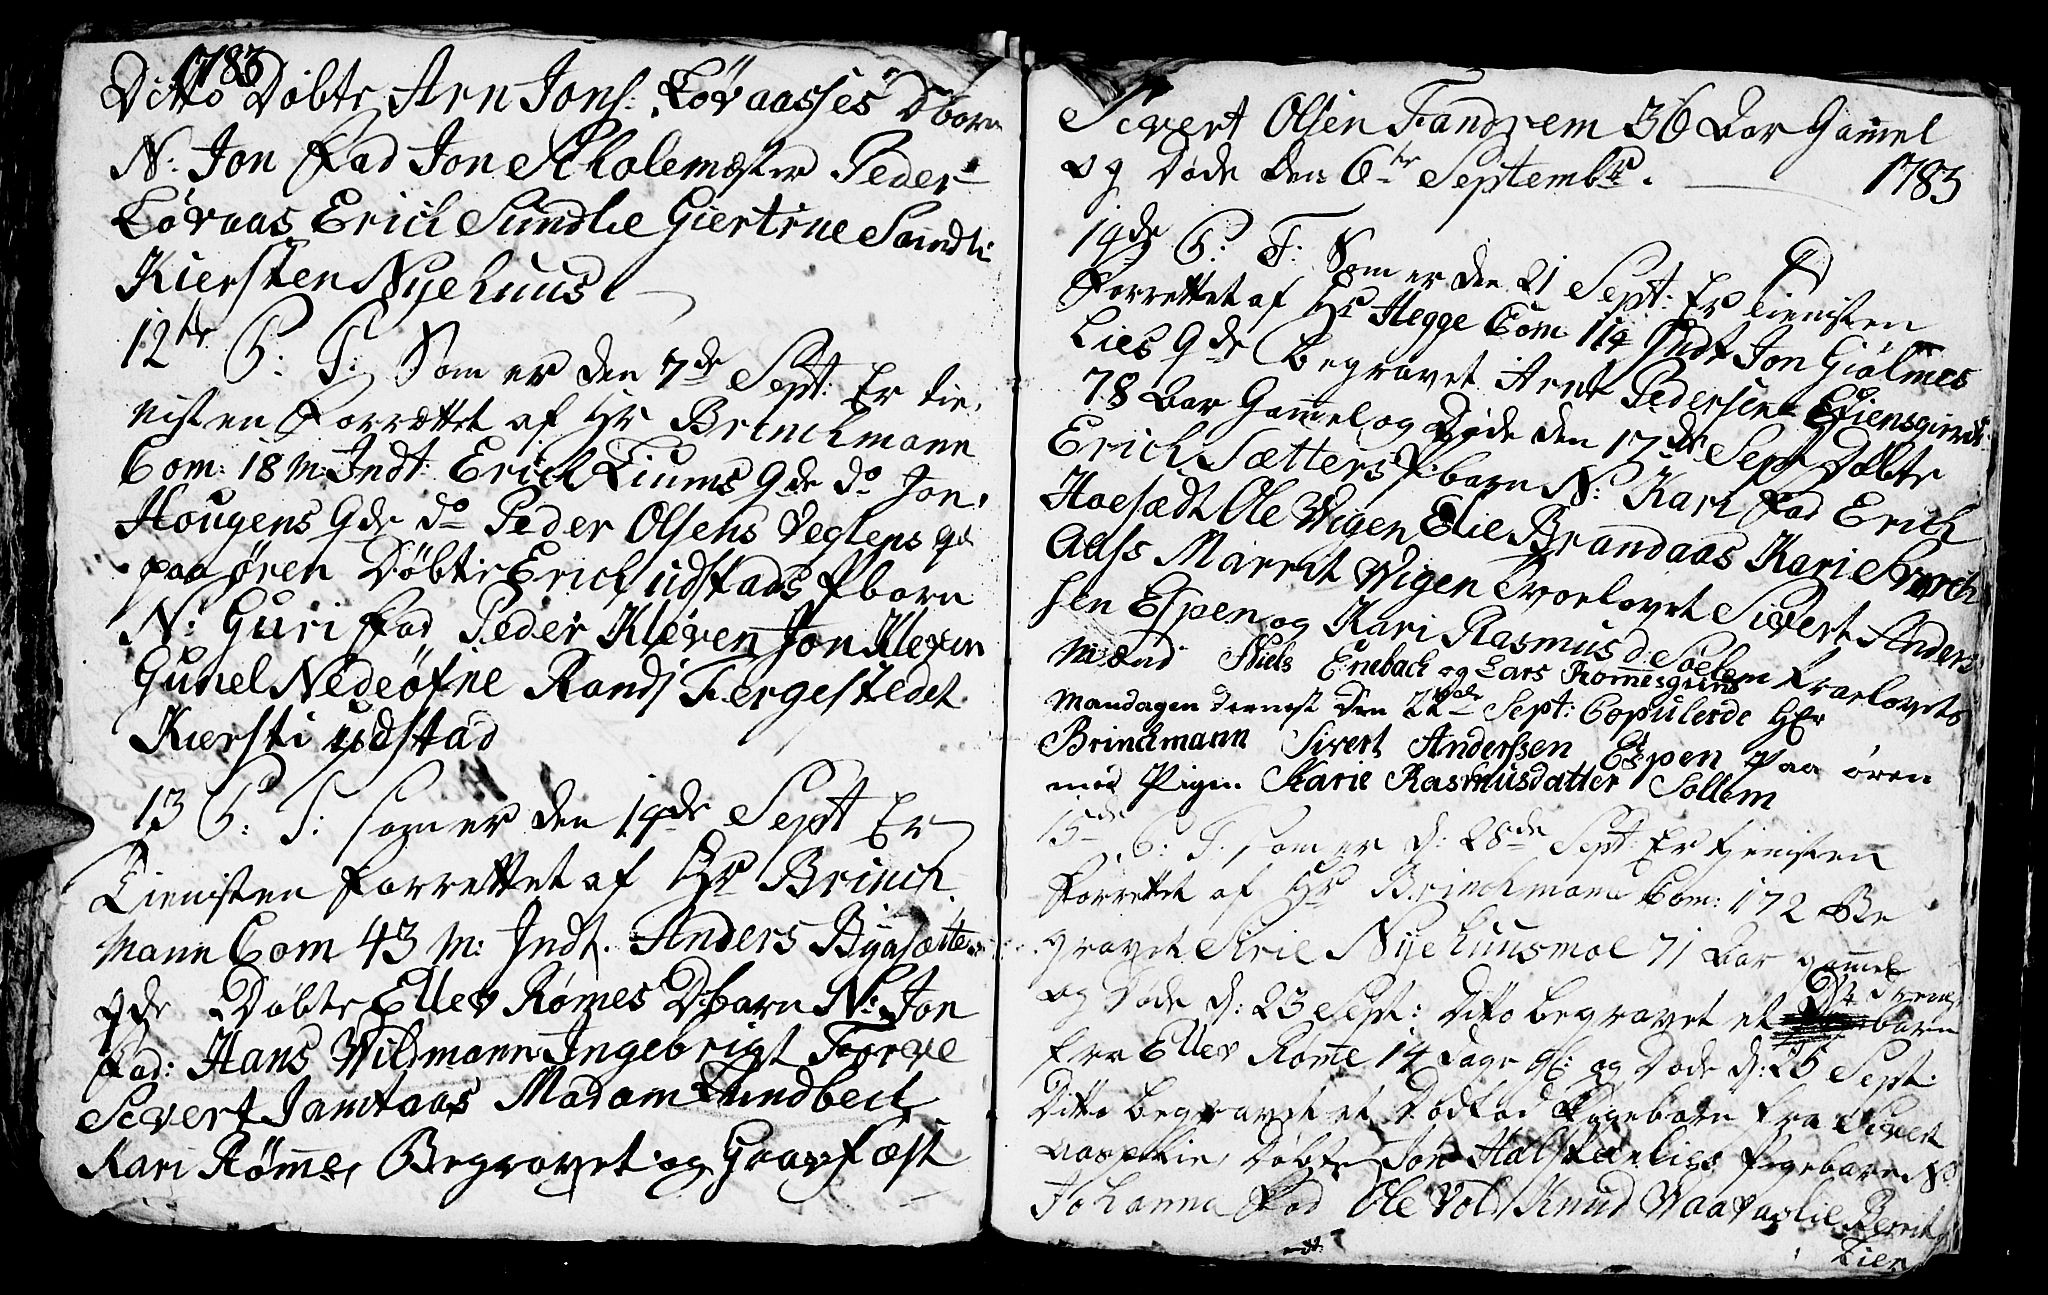 1783
Ditto Døbte Arn Jons: Løvaasses Dbarn
N: Jon Fad Jon Skolemester Peder
Løvaas Erich Sundlie Giertrue Sundli
Kiersten Nyehuus
12te P: T: Som er den 7de Sept: Er tie,
nisten Forrettet af Hr Brinchmann
Com: 18 M: Indt: Erich Liums Qde do Jon,
Hougens Qde do Peder Olsens Veglens qd
paa ören Döbte Erich udstads Pbarn
N: Guri Fad Peder Kleven Jon Kleven
Gunel Nedeöfne Randj Fergestedet
Kiersti udstad
13 P: T: som er den 14de Sept Er
Tienisten Forrettet af Hr Brinch
mann Com 43 M: Indt. Anders Byasætters
qde Døbte Ellev Rømes Dbarn N: Jon
Fad: Hans Wildmann Ingebrigt Forve
Sivert Jamtaas Madam Lundbech
Kari Rømme, Begravet og Graafæst
Sivert Olsen Fandrem 36 Aar Gamel
og Døde den 6te Septembr.
1783
14de P: T: Som er den 21 Sept: Er tienisten
Forrettet af Hr Hegge Com 114 Indt Jon Giølmes
Lies Qde Begravet Arnt Pedersen
78 Aar Gamel og Døde den 17de Sept Døbte
Erich Sætters Pbarn N: Kari Fad Erich
Hoesædt Ole Wigen Elie Brandaas Kari
Aass Marrit Wigen Troelovet Sivert Anders
sen Espen og Kari Rasmusd Soelem Troelovets
Mænd Niels Enebach og Lars Romesgrind
Mandagen dernest den 22de Sept: Copulerde Hr
Brinckmann Sivert Anderssen Espen paa ören
med Pigen Karie Rasmusdatter Sollem
15de P: T. som er d: 28de Sept: Er tienisten
Forrettet af Hr Brinchmann Com: 172 Be
gravet Siril Nyehuusmoe 71 Aar gammel
og Døde d: 23 Sept: Ditto begravet et Drenge
barn
fra Ellev Rømme 14 Dage gl: og Døde d: 26 Sept:
Ditto begravet et Dødfød Pigebarn fra Sivert
Aasplie, Døbte Jon Halstenlies Pigebarn N:
Johanna Fad Ole Vold Knud Waavaslie Berrit
Lien